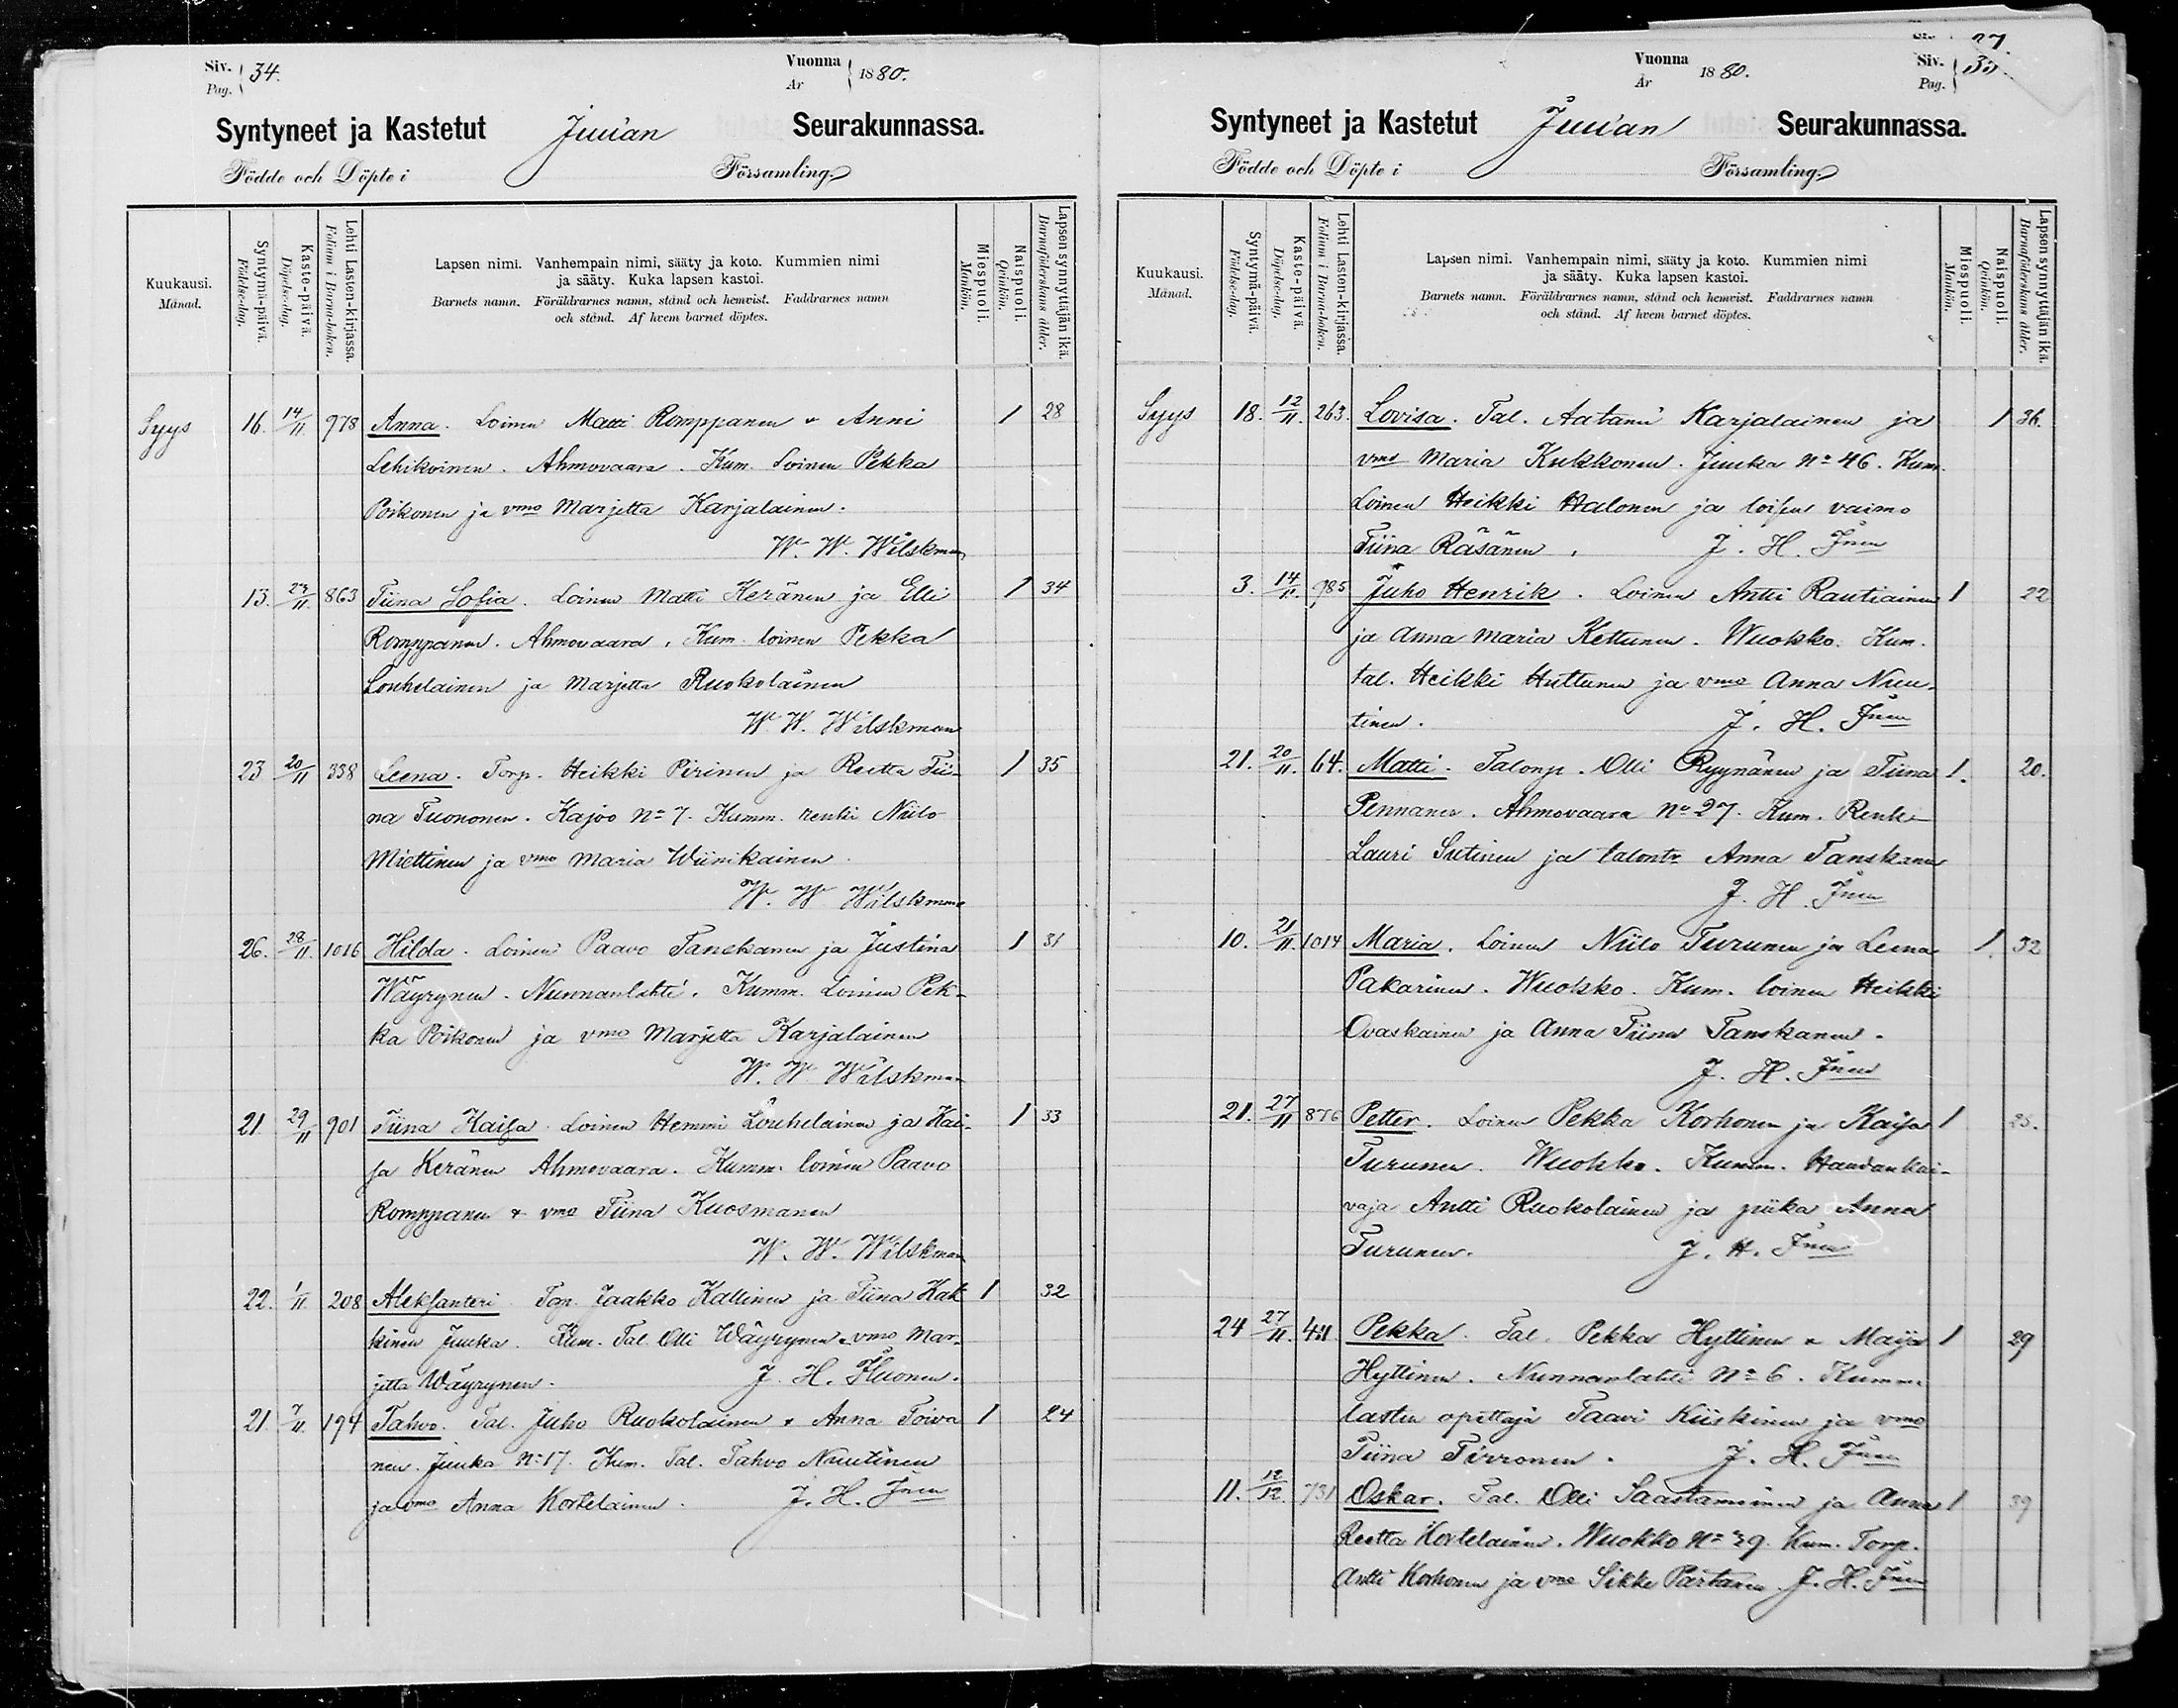 Siv. Pag. 34.
Vuonna År 1880.
Syntyneet ja Kastetut Juuan Seurakunnassa.
Födde och Döpte i Församling.
Kuukausi. Månad.
Syntymä-päivä. Födelse-dag.
Kaste-päivä. Döpelse-dag.
Lehti Lasten-kirjassa. Folium i Barna-boken.
Lapsen nimi. Vanhempain nimi, sääty ja koto. Kummien nimi
ja sääty. Kuka lapsen kastoi.
Barnets namn. Föräldrarnes namn, stånd och hemvist. Faddrarnes namn
och stånd. Af hvem barnet döptes.
Miespuoli. Mankön.
Naispuoli. Qvinkön.
Lapsen synnyttäjän ikä. Barnaföderskans ålder.
Syys 16. 14/11. 978 Anna. Loinen Matti Romppanen & Anni 1 28
Lehikoinen. Ahmovaara. Kum. Loinen Pekka
Poikonen ja vmo Marjetta Karjalainen.
W. W. Wilskman
13. 23/11. 863 Tiina Sofia. Loinen Matti Keränen ja Elli 1 34
Romppanen. Ahmovaara. Kum. loinen Pekka
Louhelainen ja Marjetta Ruokolainen
W. W. Wilskman
23 20/11 338 Leena. Torp. Heikki Pirinen ja Reetta Tii- 1 35
na Tuononen. Kajoo No 7. Kumm. renki Niilo
Miettinen ja vmo Maria Wiinikainen.
W. W Wilskman
26. 28/11. 1016 Hilda. Loinen Paavo Tanskanen ja Justina 1 31
Wäyrynen. Nunnanlahti. Kumm. Loinen Pek-
ka Poikonen ja vmo Marjetta Karjalainen
W. W. Wilskman
21 29/11 901 Tiina Kaisa. Loinen Hemmi Louhelainen ja Kai- 1 33
sa Keränen Ahmovaara. Kumm. loinen Paavo
Romppanen & vmo Tiina Kuosmanen
W. W. Wilskman
22. 1/11. 208 Aleksanteri Jaakko Kallinen ja Tiina Hak 1 32
kinen Juuka. Kum. Tal. Olli Wäyrynen & vmo Mar-
jetta Wäyrynen. J. H.
21. 7/11. 194 Tahvo. Tal. Juho Ruokolainen & Anna Toiva 1 24
nen. Juuka No 17. Kum. Tal. Tahvo Nuutinen
ja vmo Anna Kortelainen. J. H.
Siv. Pag.
Vuonna År 1880.
Syntyneet ja Kastetut Juuan Seurakunnassa.
Födde och Döpte i Församling.
Kuukausi. Månad.
Syntymä-päivä. Födelse-dag.
Kaste-päivä. Döpelse-dag.
Lehti Lasten-kirjassa. Folium i Barna-boken.
Lapsen nimi. Vanhempain nimi, sääty ja koto. Kummien nimi
ja sääty. Kuka lapsen kastoi.
Barnets namn. Föräldrarnes namn, stånd och hemvist. Faddrarnes namn
och stånd. Af hvem barnet döptes.
Miespuoli. Mankön.
Naispuoli. Qvinkön.
Lapsen synnyttäjän ikä. Barnaföderskans ålder.
Syys 18. 12/11. 263. Lovisa. Tal. Aatami Karjalainen ja 1 36.
vmo Maria Kukkonen. Juuka No 46. Kum.
Loinen Heikki Halonen ja loisen vaimo
Tiina Räsänen. J. H.
3. 14/11. 985 Juho Henrik. Loinen Antti Rautiainen 1 22
ja Anna Maria Kettunen. Wuokko. Kum.
tal. Heikki Huttunen ja vmo Anna Nuu-
tinen. J. H.
21. 20/11. 64. Matti. Talonp. Olli Ryynänen ja Tiina 1. 20.
Pennanen. Ahmovaara No 27. Kum. Renki
Lauri Sutinen ja talontr Anna Tanskanen
J. H.
10. 21/11. 1014 Maria. Loinen Niilo Turunen ja Leena 1. 32
Pakarinen. Wuokko. Kum. loinen Heikki
Ovaskainen ja Anna Tiina Tanskanen.
J. H.
21. 27/11 876 Petter. Loinen Pekka Korhonen ja Kaisa 1 25.
Turunen. Wuokko. Kumm. Haudankai-
vaja Antti Ruokolainen ja piika Anna
Turunen. J. H.
24 27/11. Pekka. Tal. Pekka Hyttinen & Maija 1 29
Hyttinen. Nunnanlahti No 6. Kumm.
lasten opettaja Taavi Kiiskinen ja vmo
Tiina Tirronen. J. H.
11. 12/12. 731 Oskar. Tal. Olli Saastamoinen ja Anna 1 39
Reetta Kortelainen. Wuokko No 39. Kum. Torp.
Antti Korhonen ja vmo Sikke Partanen. J. H.